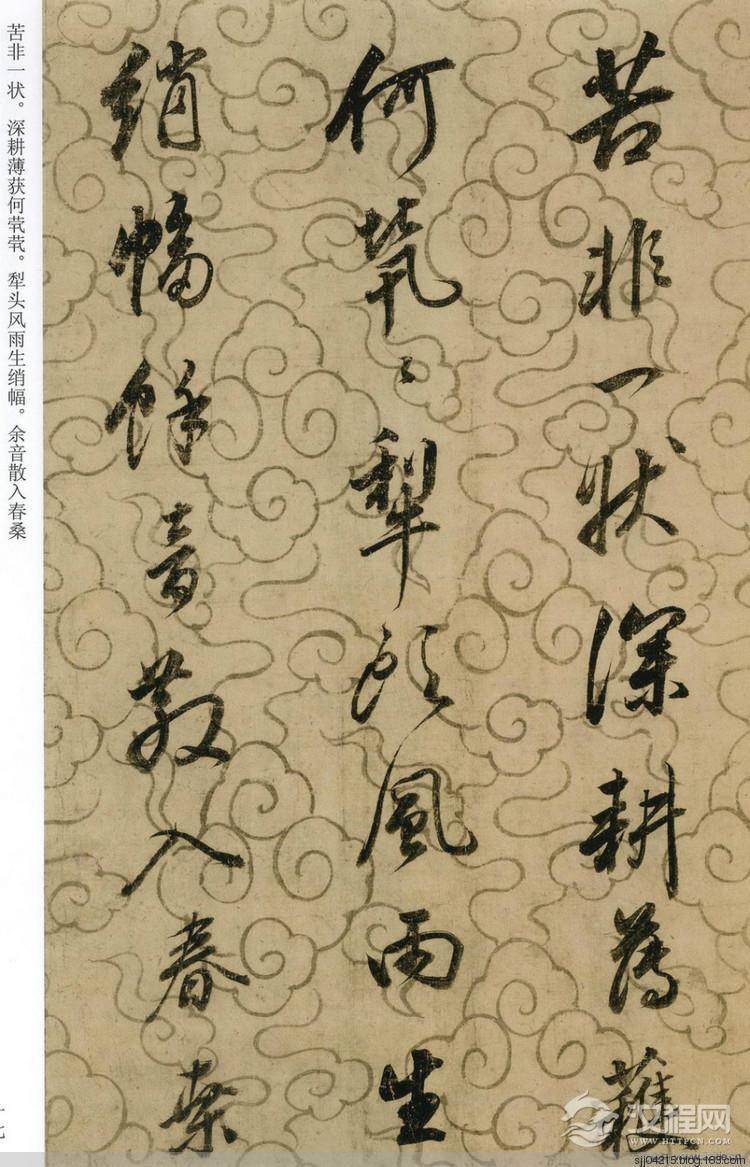 苦非一狀深耕薄穫
何煢〻犁頭風雨生
綃幡餘音散入春桑
苦非一状。深耕薄获何茕茕。犁头风雨生绡幡。余音散入春桑
十七
汉程网
WWW.HTTPCN.COM
sjj04215.blog.163.com